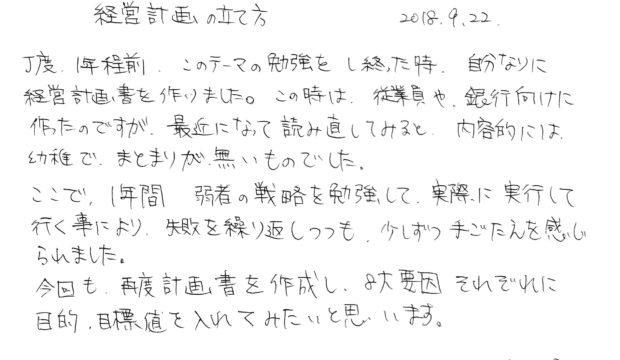 経営計画の立て方 2018.9.22.
丁度、1年程前、このテーマの勉強をし終った時、自分なりに
経営計画書を作りました。この時は、従業員や、銀行向けに
作ったのですが、最近になって読み直してみると、内容的には、
幼稚で、まとまりが無いものでした。
ここで、1年間 弱者の戦略を勉強して、実際に実行して
行く事により、失敗を繰り返しつつも、少しずつ手ごたえを感じ
られました。
今回も、再度計画書を作成し、8大要因それぞれに
目的、目標値を入れてみたいと思います。